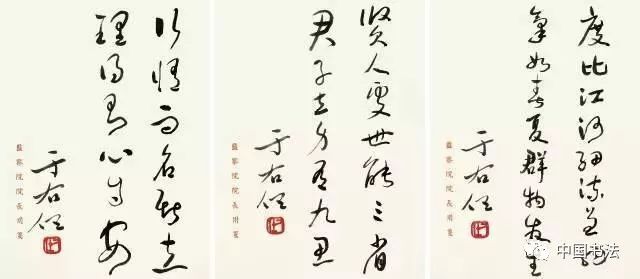 度比江河細流納
氣如春夏群物發生
于右任
監察院院長用箋
賢人處世能三省
君子立身有九思
于右任
監察院院長用箋
行脩而名斯立
理得則心自安
于右任
監察院院長用箋
中国书法